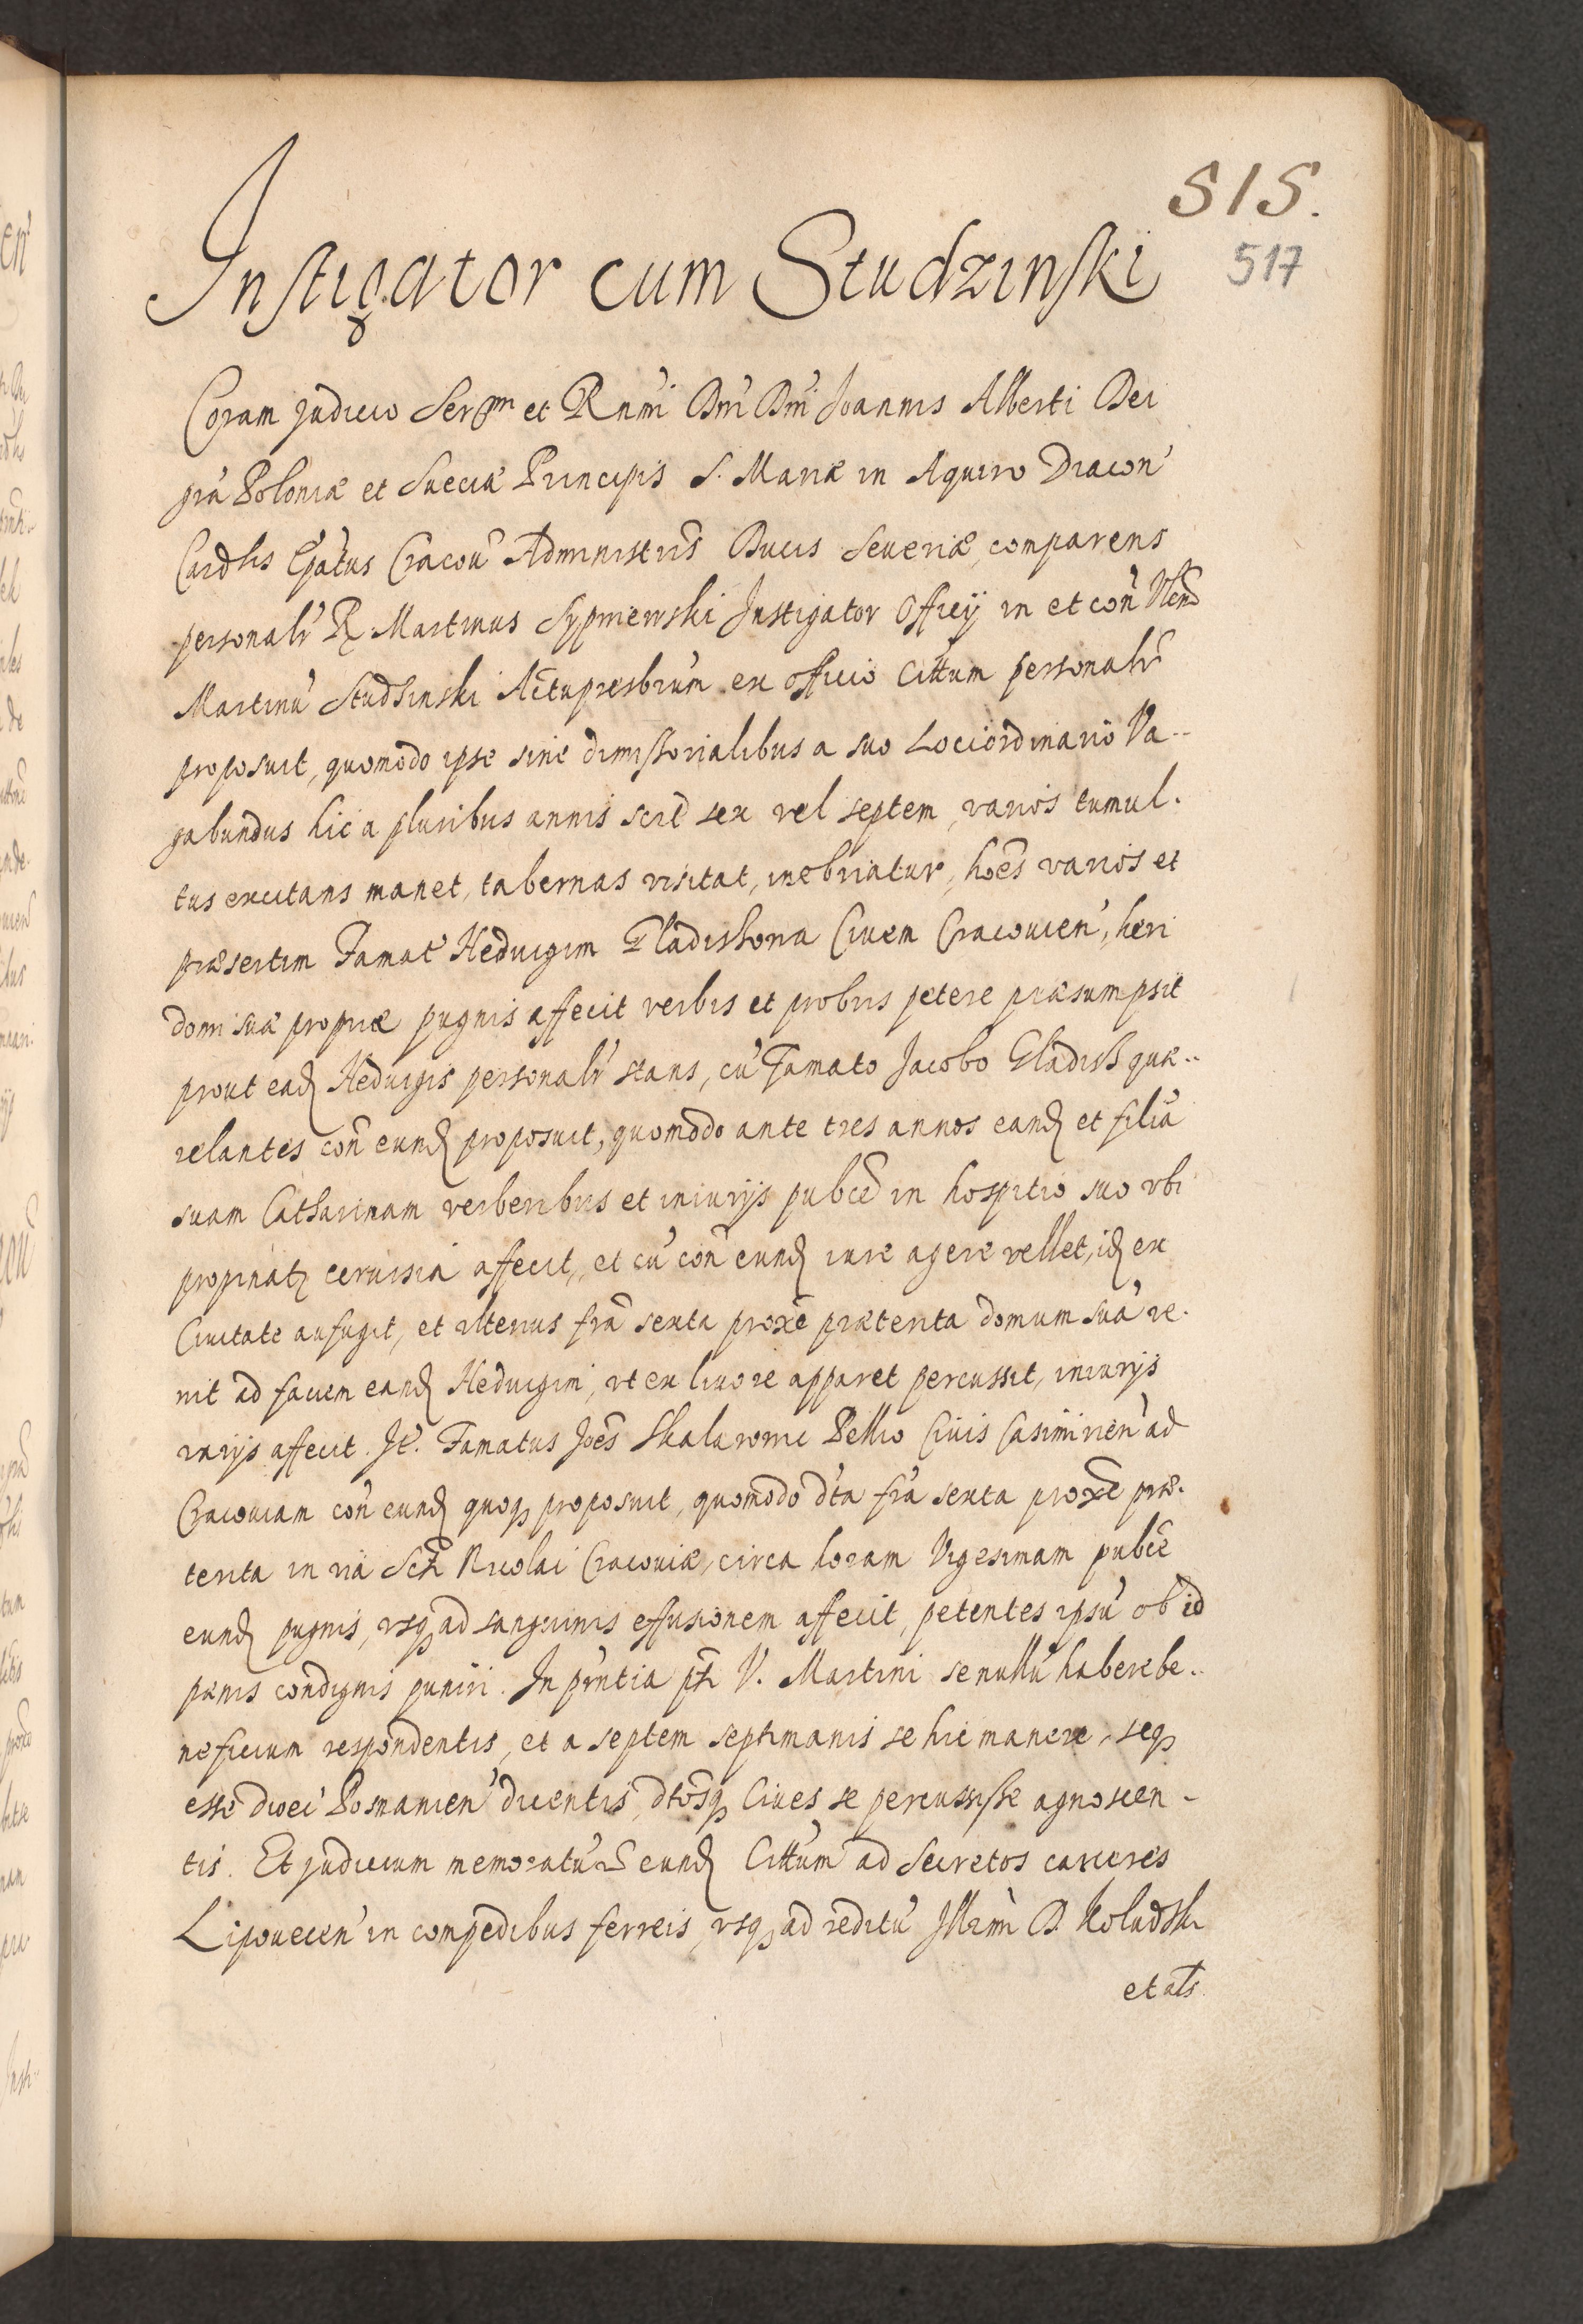 515.
517
Instigator cum Studzinski
Coram judicio Serᵐⁱ et Rn̄mi Dn̄i Dn̄i Joannis Alberti Dei
grã Poloniæ et Sueciæ Principis S. Mariæ in Aquiro Diacon̄
Cardlis Ep̄atus Cracov̄ Administris Ducis Severiæ, comparens
personalr̄ R. Martinus Sypniewski Instigator Officÿ in et con̄ Vlem̄
Martinū Studzinski Actupresbrūm ex officio Cittum personalr̄
proposuit, quomodo ipse sine dimissorialibus a suo Lociordinario Va-
gabundus hic a pluribus annis scil̄t sex vel septem, varios tumul-
tus excitans manet, tabernas visitat, inebriatur, hoēs varios et
præsertim Famat̄ Hedvigim Gladissona Civem Cracovien̄, heri
domi suæ propriæ pugnis affecit verbis et probris petere præsumpsit
prout ead̄ Hedvigis personalr̄ stans, cū Famato Jacobo Gladissz quæ-
relantes con̄ eund̄ proposuit, quomodo ante tres annos eand̄ et filiā
suam Catharinam verberibus et iniurÿs publcē in hospitio suo vbi
propinatʒ cervisiā affecit, et cū con̄ eund̄ iure agere vellet, id̄ ex
Civitate aufugit, et ulterius friā sexta proxē præterita domum suā ve-
nit ad faciem eand̄ Hedvigim, vt ex livore apparet percussit, iniurÿs
varÿs affecit. It̄. Famatus Joēs Skalarowic Pellio Civis Casimirien̄ ad
Cracoviam con̄ eund̄ quoqꝫ proposuit, quomodo dta friā sexta proxē præ-
terita in viā Sctī Nicolai Cracoviæ, circa horam Vigesimam publcē
eund̄ pugnis, vsqꝫ ad sanguinis effusionem affecit, petentes ipsū ob id
pænis condignis puniri. In prn̄tia pti V. Martini se nullū habere be-
neficium respondentis, et a septem septimanis se hic manere, seqꝫ
esse dioec̄ Posnanien̄ dicentis, dtosqꝫ Cives se percussisse agnoscen-
tis. Et judicium memoratū eund̄ Cittum ad Secretos carceres
Lipovecen̄ in compedibus ferreis, vsqꝫ ad reditū Illr̄mi D. Koludzki
et als